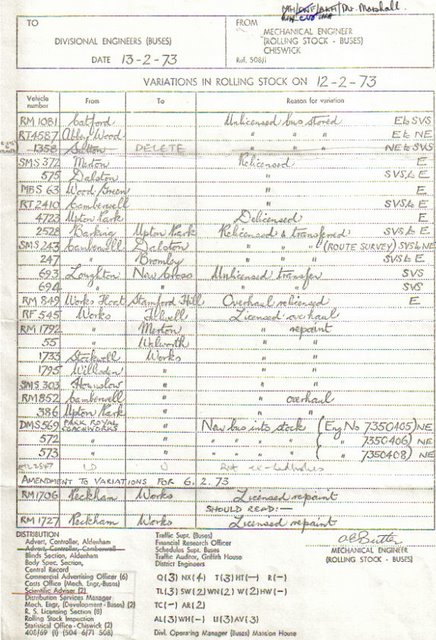 TO
DIVISIONAL ENGINEERS (BUSES)
DATE 13-2-73
FROM
MECHANICAL ENGINEER
(ROLLING STOCK - BUSES)
CHISWICK
Ref. 508/1
VARIATIONS IN ROLLING STOCK ON 12-2-73
Vehicle number From To Reason for variation
RM 1081 Catford Unlicensed bus stored E to SVS
RT4587 Abbey Wood " " " E to NE
1358 Sutton DELETE " " " NE to SVS
SMS 372 Merton Relicensed E
575 Dalston " SVS to E
MBS 63 Wood Green " E
RT 2410 Camberwell " SVS to E
4723 Upton Park Delicensed E
2528 Barking Upton Park Relicensed & transferred SVS to E
SMS 243 Camberwell Dalston " " " (ROUTE SURVEY) SVS to NE
247 " Bromley " " " SVS to E
693 Loughton New Cross Unlicensed transfer SVS
694 " " " " SVS
RM 849 Works Float Stamford Hill Overhaul relicensed E
RF 545 Works Fulwell Licensed overhaul
RM 1792 " Merton " repaint
55 " Walworth " "
1733 Stockwell Works " "
1795 Willesden " " "
SMS 303 Hounslow " " "
RM 852 Camberwell " " overhaul
386 Upton Park " " "
DMS 569 PARK ROYAL COACHWORKS " New bus into stock (Eng No 7350405) NE
572 " " " " " ( " 7350406) NE
573 " " " " " ( " 7350408) NE
AMENDMENT TO VARIATIONS FOR 6.2.73
RM1706 Peckham Works Licensed repaint
SHOULD READ:-
RM 1727 Peckham Works Licensed repaint
MECHANICAL ENGINEER
(ROLLING STOCK - BUSES)
DISTRIBUTION
Advert. Controller, Aldenham
Advert. Controller, Camberwell
Blinds Section, Aldenham
Body Spec. Section,
Central Record
Commercial Advertising Officer (6)
Costs Office (Mech. Engr-Buses)
Scientific Adviser (2)
Distribution Services Manager
Mech. Engr. (Development - Buses) (2)
R. S. Licensing Section (8)
Rolling Stock Inspection
Statistical Office - Chiswick (2)
408/69 (I) (504 6/71 508)
Traffic Supt. (Buses)
Financial Research Officer
Schedules Supt. Buses
Traffic Auditor, Griffith House
District Engineers
Q(3) NX(4) T(3) HT(-) R(-)
TL(3) SW(2) WN(2) W(2) HW(-)
TC(-) AR(2)
AL(3) WH(-) U(3) AV(3)
Divl. Operating Manager (Buses) Mansion House